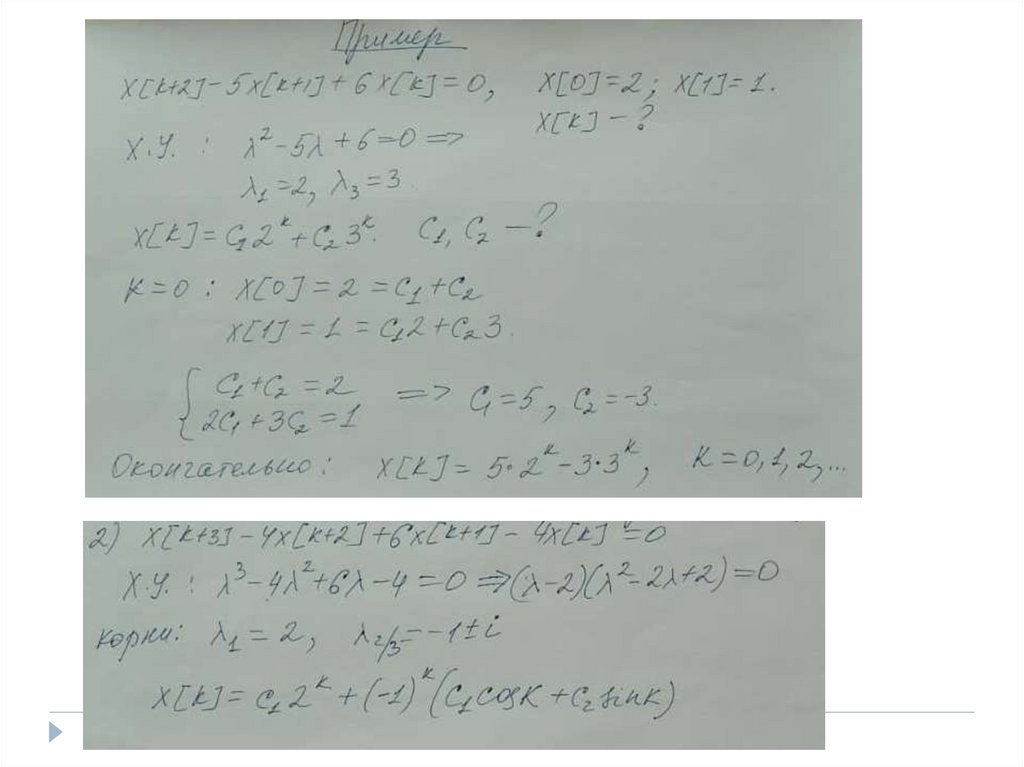 Пример
x[k+2]-5x[k+1]+6x[k]=0, x[0]=2; x[1]=1.
x[k]-?
Х.У. : λ²-5λ+6=0 =>
λ₁=2, λ₃=3.
x[k]=C₁2ᵏ+C₂3ᵏ. C₁, C₂ -?
k=0 : x[0]=2=C₁+C₂
x[1]=1=C₁2+C₂3.
{ C₁+C₂=2
2C₁+3C₂=1 => C₁=5, C₂=-3.
Окончательно: x[k]=5·2ᵏ-3·3ᵏ, k=0,1,2,...
2) x[k+3]-4x[k+2]+6x[k+1]-4x[k]=0
Х.У. : λ³-4λ²+6λ-4=0 => (λ-2)(λ²-2λ+2)=0
корни: λ₁=2, λ₂/₃=-1±i
x[k]=C₁2ᵏ+(-1)ᵏ(C₁cosk+C₂sink)